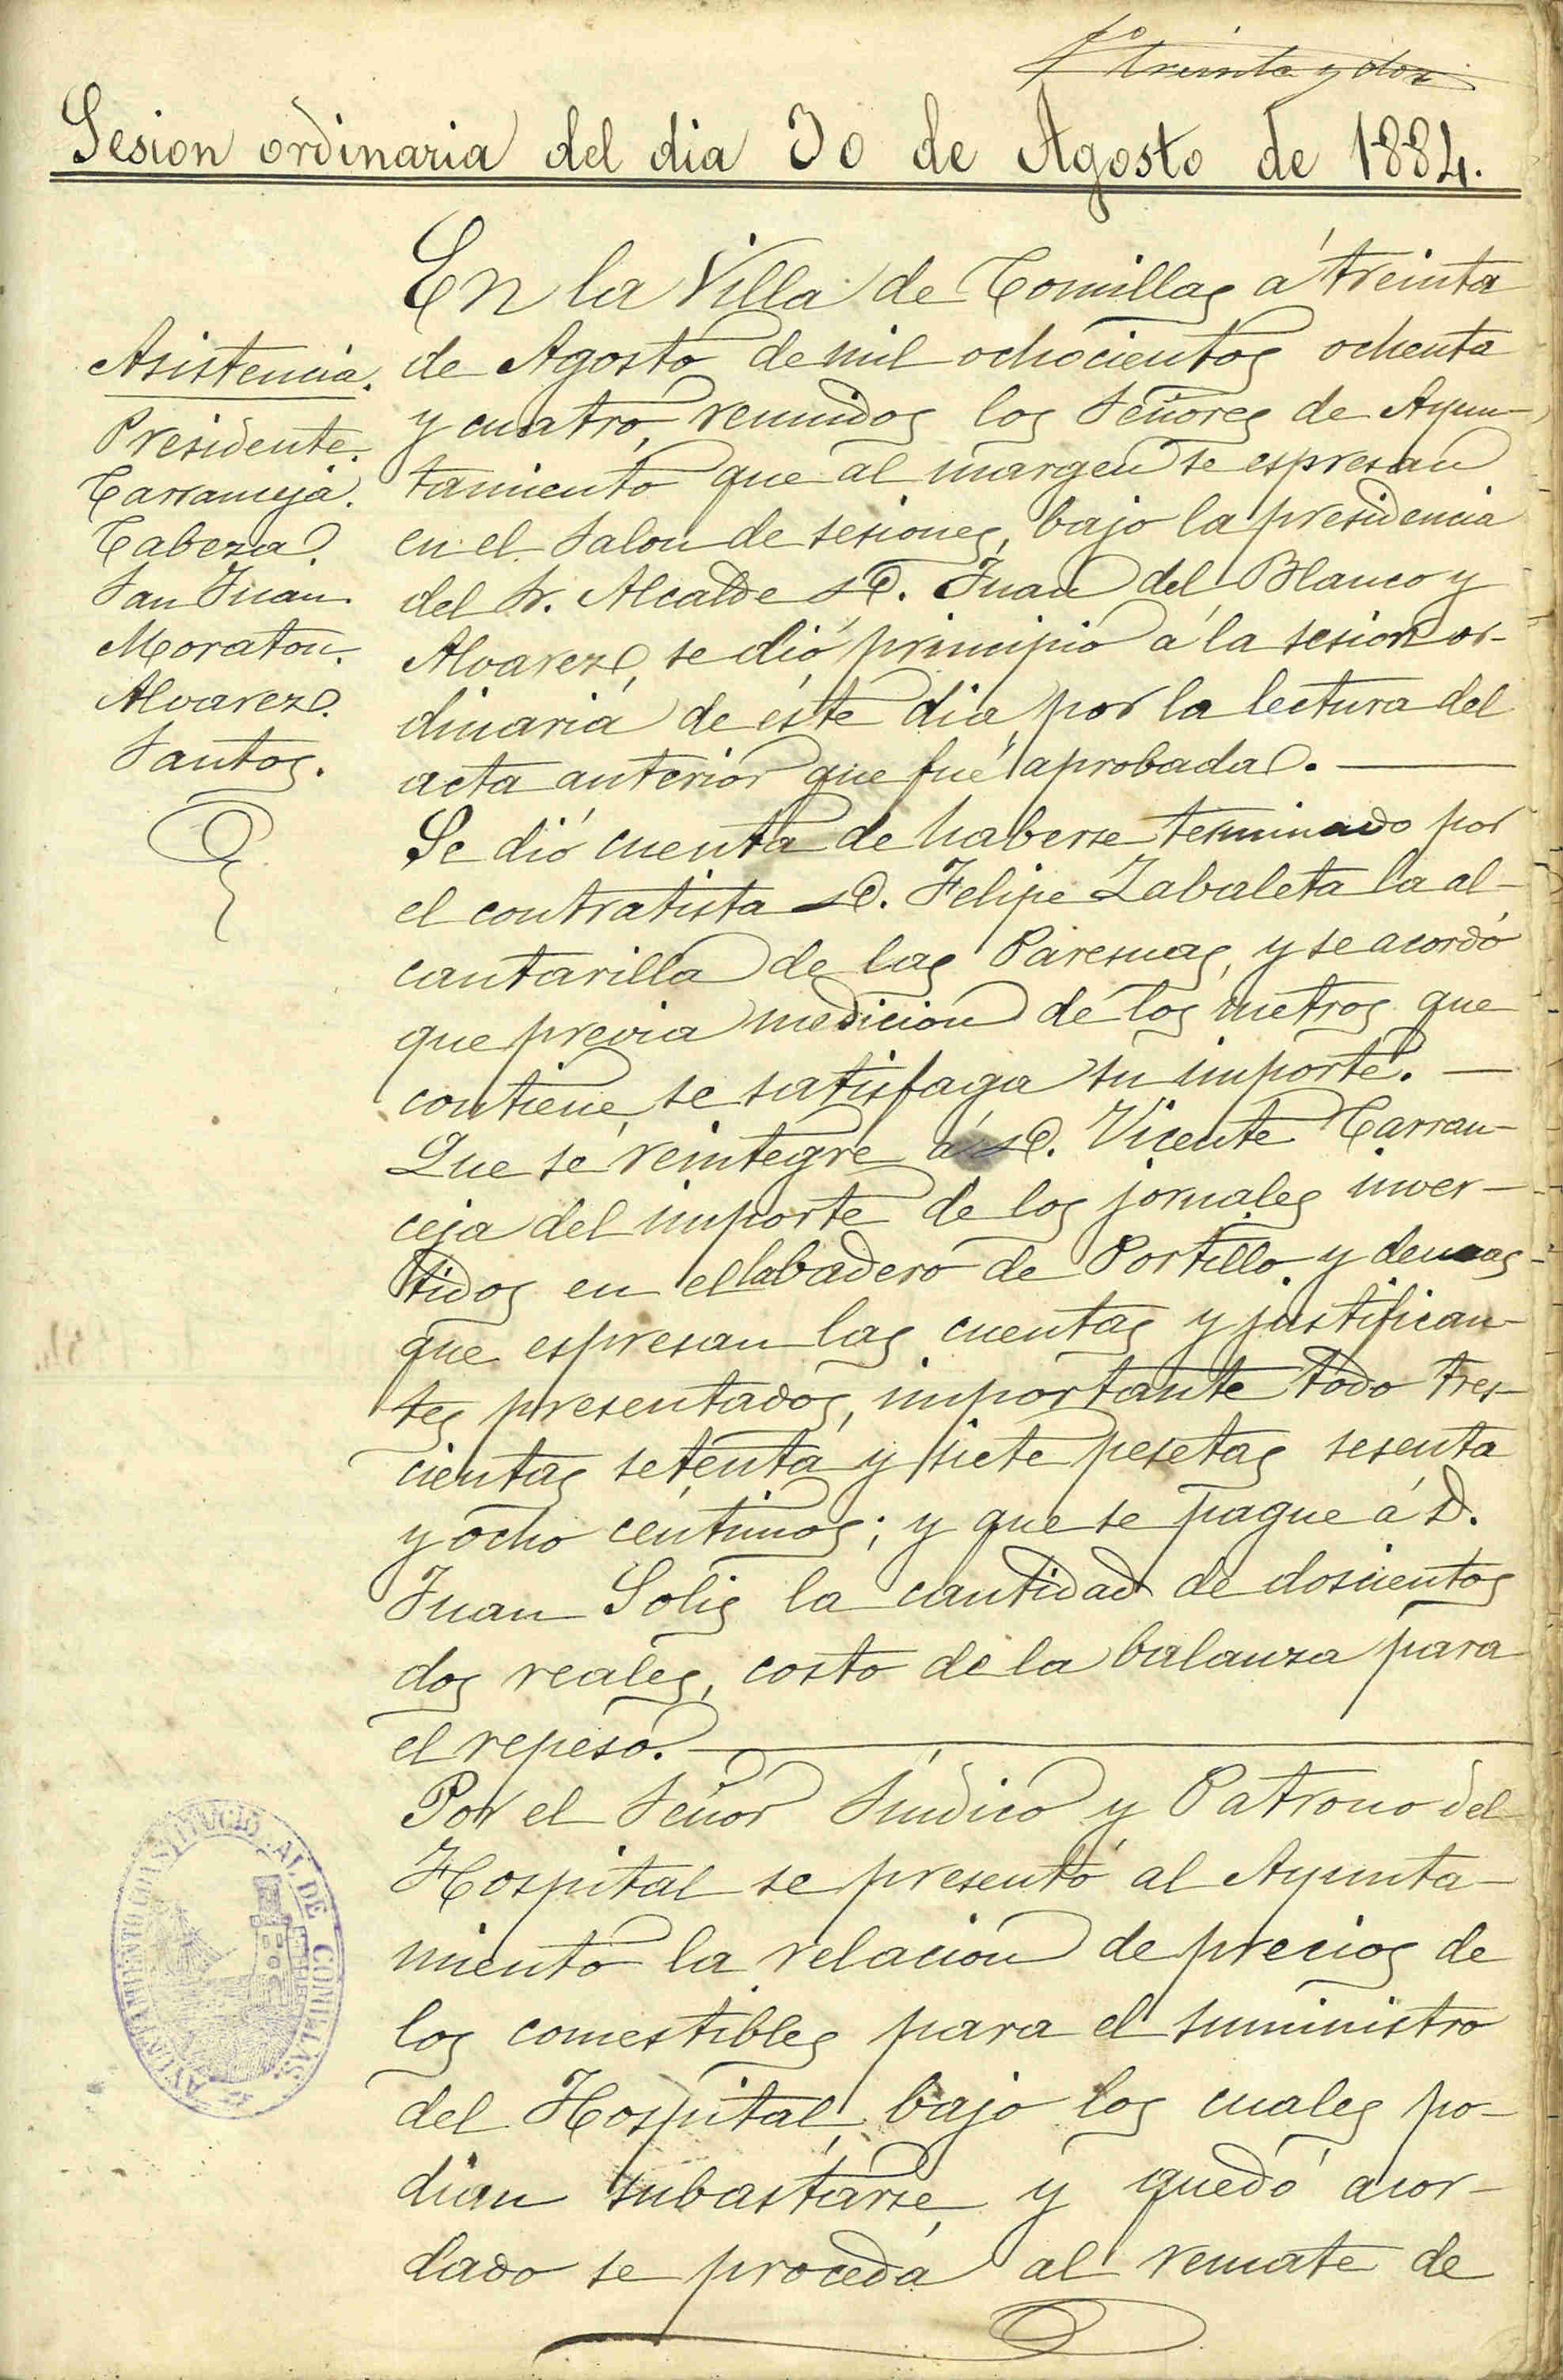 fº treinta y dos
Sesion ordinaria del dia 30 de Agosto de 1884.
Asistencia.
Presidente.
Carranceja.
Cabeza.
San Juan.
Moraton.
Alvarez.
Santos.
En la Villa de Comillas á treinta
de Agosto de mil ochocientos ochenta
y cuatro, reunidos los Señores de Ayun-
tamiento que al margen se espresan
en el Salon de sesiones, bajo la presidencia
del Sr. Alcalde D. Juan del Blanco y
Alvarez, se dió principio á la sesion or-
dinaria de éste dia, por la lectura del
acta anterior que fué aprobada.
Se dió cuenta de haberse terminado por
el contratista D. Felipe Zabaleta la al-
cantarilla de las Paresuas, y se acordó
que previa medicion de los metros que
contiene, se satisfaga su importe.
Que se reintegre á D. Vicente Carran-
ceja del importe de los jornales inver-
tidos en el labadero de Portillo y demas
que espresan las cuentas y justifican-
tes presentados, importante todo tres-
cientas setenta y siete pesetas sesenta
y ocho céntimos; y que se pague á D.
Juan Solis la cantidad de doscientos
dos reales, costo de la balanza para
el repeso.
Por el Señor Síndico y Patrono del
Hospital se presentó al Ayunta-
miento la relacion de precios de
los comestibles para el suministro
del Hospital, bajo los cuales po-
dian subastarse, y quedó acor-
dado se proceda al remate de
AYUNTAMIENTO CONSTITUCIONAL DE COMILLAS